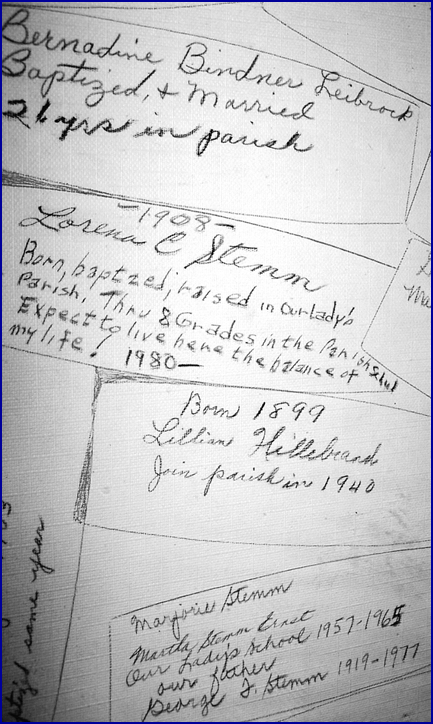 Bernadine Bindner Leibrock
Baptized, & Married
26 yrs in parish
-1908-
Lorena C Stemm
Born, baptized, raised in Our Lady's
Parish, Thru 8 Grades in the Parish Schul
Expect to live here the balance of
my life! 1980-
Ma
Born 1899
Lillian Hillebrand
Join parish in 1940
ptized same year
Marjorie Stemm
Martha Stemm Ernst
Our Lady's School 1957-1965
our father
George J. Stemm 1919-1977